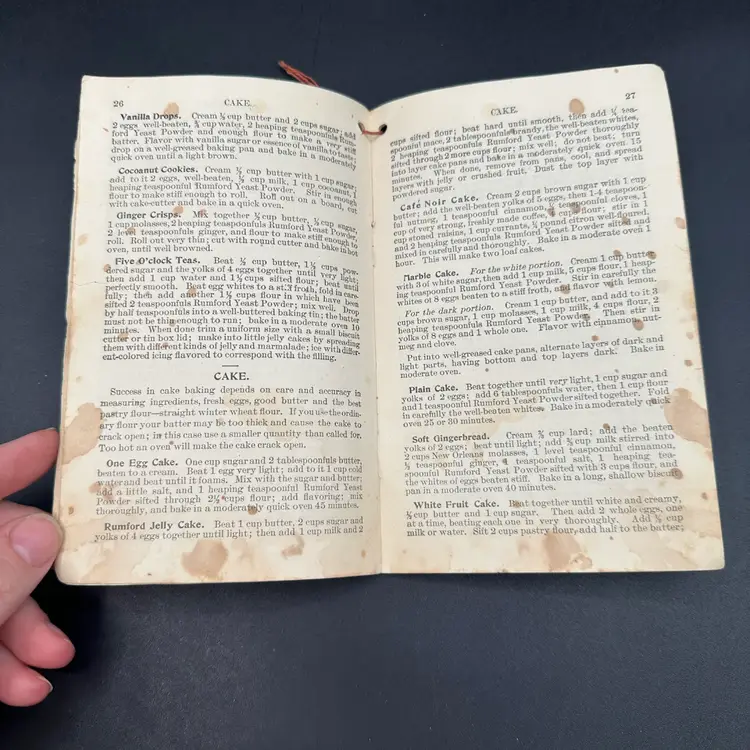 26 CAKE.
Vanilla Drops. Cream ½ cup butter and 2 cups sugar; add
2 eggs well-beaten, ¾ cup water, 2 heaping teaspoonfuls Rum-
ford Yeast Powder and enough flour to make a very stiff
batter. Flavor with vanilla sugar or essence of vanilla to taste;
drop on a well-greased baking pan and bake in a moderately
quick oven until a light brown.
Cocoanut Cookies. Cream ½ cup butter with 1 cup sugar;
add to it 2 eggs, well-beaten, ½ cup milk, 1 cup cocoanut, 1
heaping teaspoonful Rumford Yeast Powder. Stir in enough
flour to make stiff enough to roll. Roll out on a board, cut
with cake-cutter and bake in a quick oven.
Ginger Crisps. Mix together ½ cup butter, ½ cup sugar,
1 cup molasses, 2 heaping teaspoonfuls Rumford Yeast Powder,
2 level teaspoonfuls ginger, and flour to make stiff enough to
roll. Roll out very thin; cut with round cutter and bake in hot
oven, until well browned.
Five O'clock Teas. Beat ½ cup butter, 1½ cups pow-
dered sugar and the yolks of 4 eggs together until very light;
then add 1 cup water and 1½ cups sifted flour; beat until
perfectly smooth. Beat egg whites to a stiff froth, fold in care-
fully; then add another 1½ cups flour in which have been
sifted 2 teaspoonfuls Rumford Yeast Powder; mix well. Drop
by half teaspoonfuls into a well-buttered baking tin; the batter
must not be thin enough to run; bake in a moderate oven 10
minutes. When done trim a uniform size with a small biscuit
cutter or tin box lid; make into little jelly cakes by spreading
them with different kinds of jelly and marmalade; ice with differ-
ent-colored icing flavored to correspond with the filling.
CAKE.
Success in cake baking depends on care and accuracy in
measuring ingredients, fresh eggs, good butter and the best
pastry flour—straight winter wheat flour. If you use the ordin-
ary flour your batter may be too thick and cause the cake to
crack open; in this case use a smaller quantity than called for.
Too hot an oven will make the cake crack open.
One Egg Cake. One cup sugar and 2 tablespoonfuls butter,
beaten to a cream. Beat 1 egg very light; add to it 1 cup cold
water and beat until it foams. Mix with the sugar and butter;
add a little salt, and 1 heaping teaspoonful Rumford Yeast
Powder sifted through 2½ cups flour; add flavoring; mix
thoroughly, and bake in a moderately quick oven 45 minutes.
Rumford Jelly Cake. Beat 1 cup butter, 2 cups sugar and
yolks of 4 eggs together until light; then add 1 cup milk and 2
CAKE. 27
cups sifted flour; beat hard until smooth, then add ½ tea-
spoonful mace, 2 tablespoonfuls brandy, the well-beaten whites,
2 heaping teaspoonfuls Rumford Yeast Powder thoroughly
sifted through 2 more cups flour; mix well; do not beat; turn
into layer cake pans and bake in a moderately quick oven 15
minutes. When done, remove from pans, cool, and spread
layers with jelly or crushed fruit. Dust the top layer with
powdered sugar.
Café Noir Cake. Cream 2 cups brown sugar with 1 cup
butter; add the well-beaten yolks of 5 eggs, then 1-4 teaspoon-
ful nutmeg, 1 teaspoonful cinnamon, ½ teaspoonful cloves, 1
cup of very strong, freshly made coffee, 4 cups flour; stir in 1
cup stoned raisins, 1 cup currants, ½ pound citron well-floured,
and 2 heaping teaspoonfuls Rumford Yeast Powder sifted and
mixed in carefully and thoroughly. Bake in a moderate oven 1
hour. This will make two loaf cakes.
Marble Cake. For the white portion. Cream 1 cup butter
with 3 of white sugar, then add 1 cup milk, 5 cups flour, 1 heap-
ing teaspoonful Rumford Yeast Powder. Stir in carefully the
whites of 8 eggs beaten to a stiff froth, and flavor with lemon.
For the dark portion. Cream 1 cup butter, and add to it 3
cups brown sugar, 1 cup molasses, 1 cup milk, 4 cups flour, 2
heaping teaspoonfuls Rumford Yeast Powder. Then stir in
yolks of 8 eggs and 1 whole one. Flavor with cinnamon, nut-
meg and clove.
Put into well-greased cake pans, alternate layers of dark and
light parts, having bottom and top layers dark. Bake in
moderate oven.
Plain Cake. Beat together until very light, 1 cup sugar and
yolks of 2 eggs; add 6 tablespoonfuls water, then 1 cup flour
and 1 teaspoonful Rumford Yeast Powder sifted together. Fold
in carefully the well-beaten whites. Bake in a moderately quick
oven 25 or 30 minutes.
Soft Gingerbread. Cream ½ cup lard; add the beaten
yolks of 2 eggs; beat until light; add ¾ cup milk stirred into
2 cups New Orleans molasses, 1 level teaspoonful cinnamon,
½ teaspoonful ginger, ½ teaspoonful salt, 1 heaping tea-
spoonful Rumford Yeast Powder sifted with 3 cups flour, and
the whites of eggs beaten stiff. Bake in a long, shallow biscuit
pan in a moderate oven 40 minutes.
White Fruit Cake. Beat together until white and creamy,
½ cup butter and 1 cup sugar. Then add 2 whole eggs, one
at a time, beating each one in very thoroughly. Add ½ cup
milk or water. Sift 2 cups pastry flour, add half to the batter;